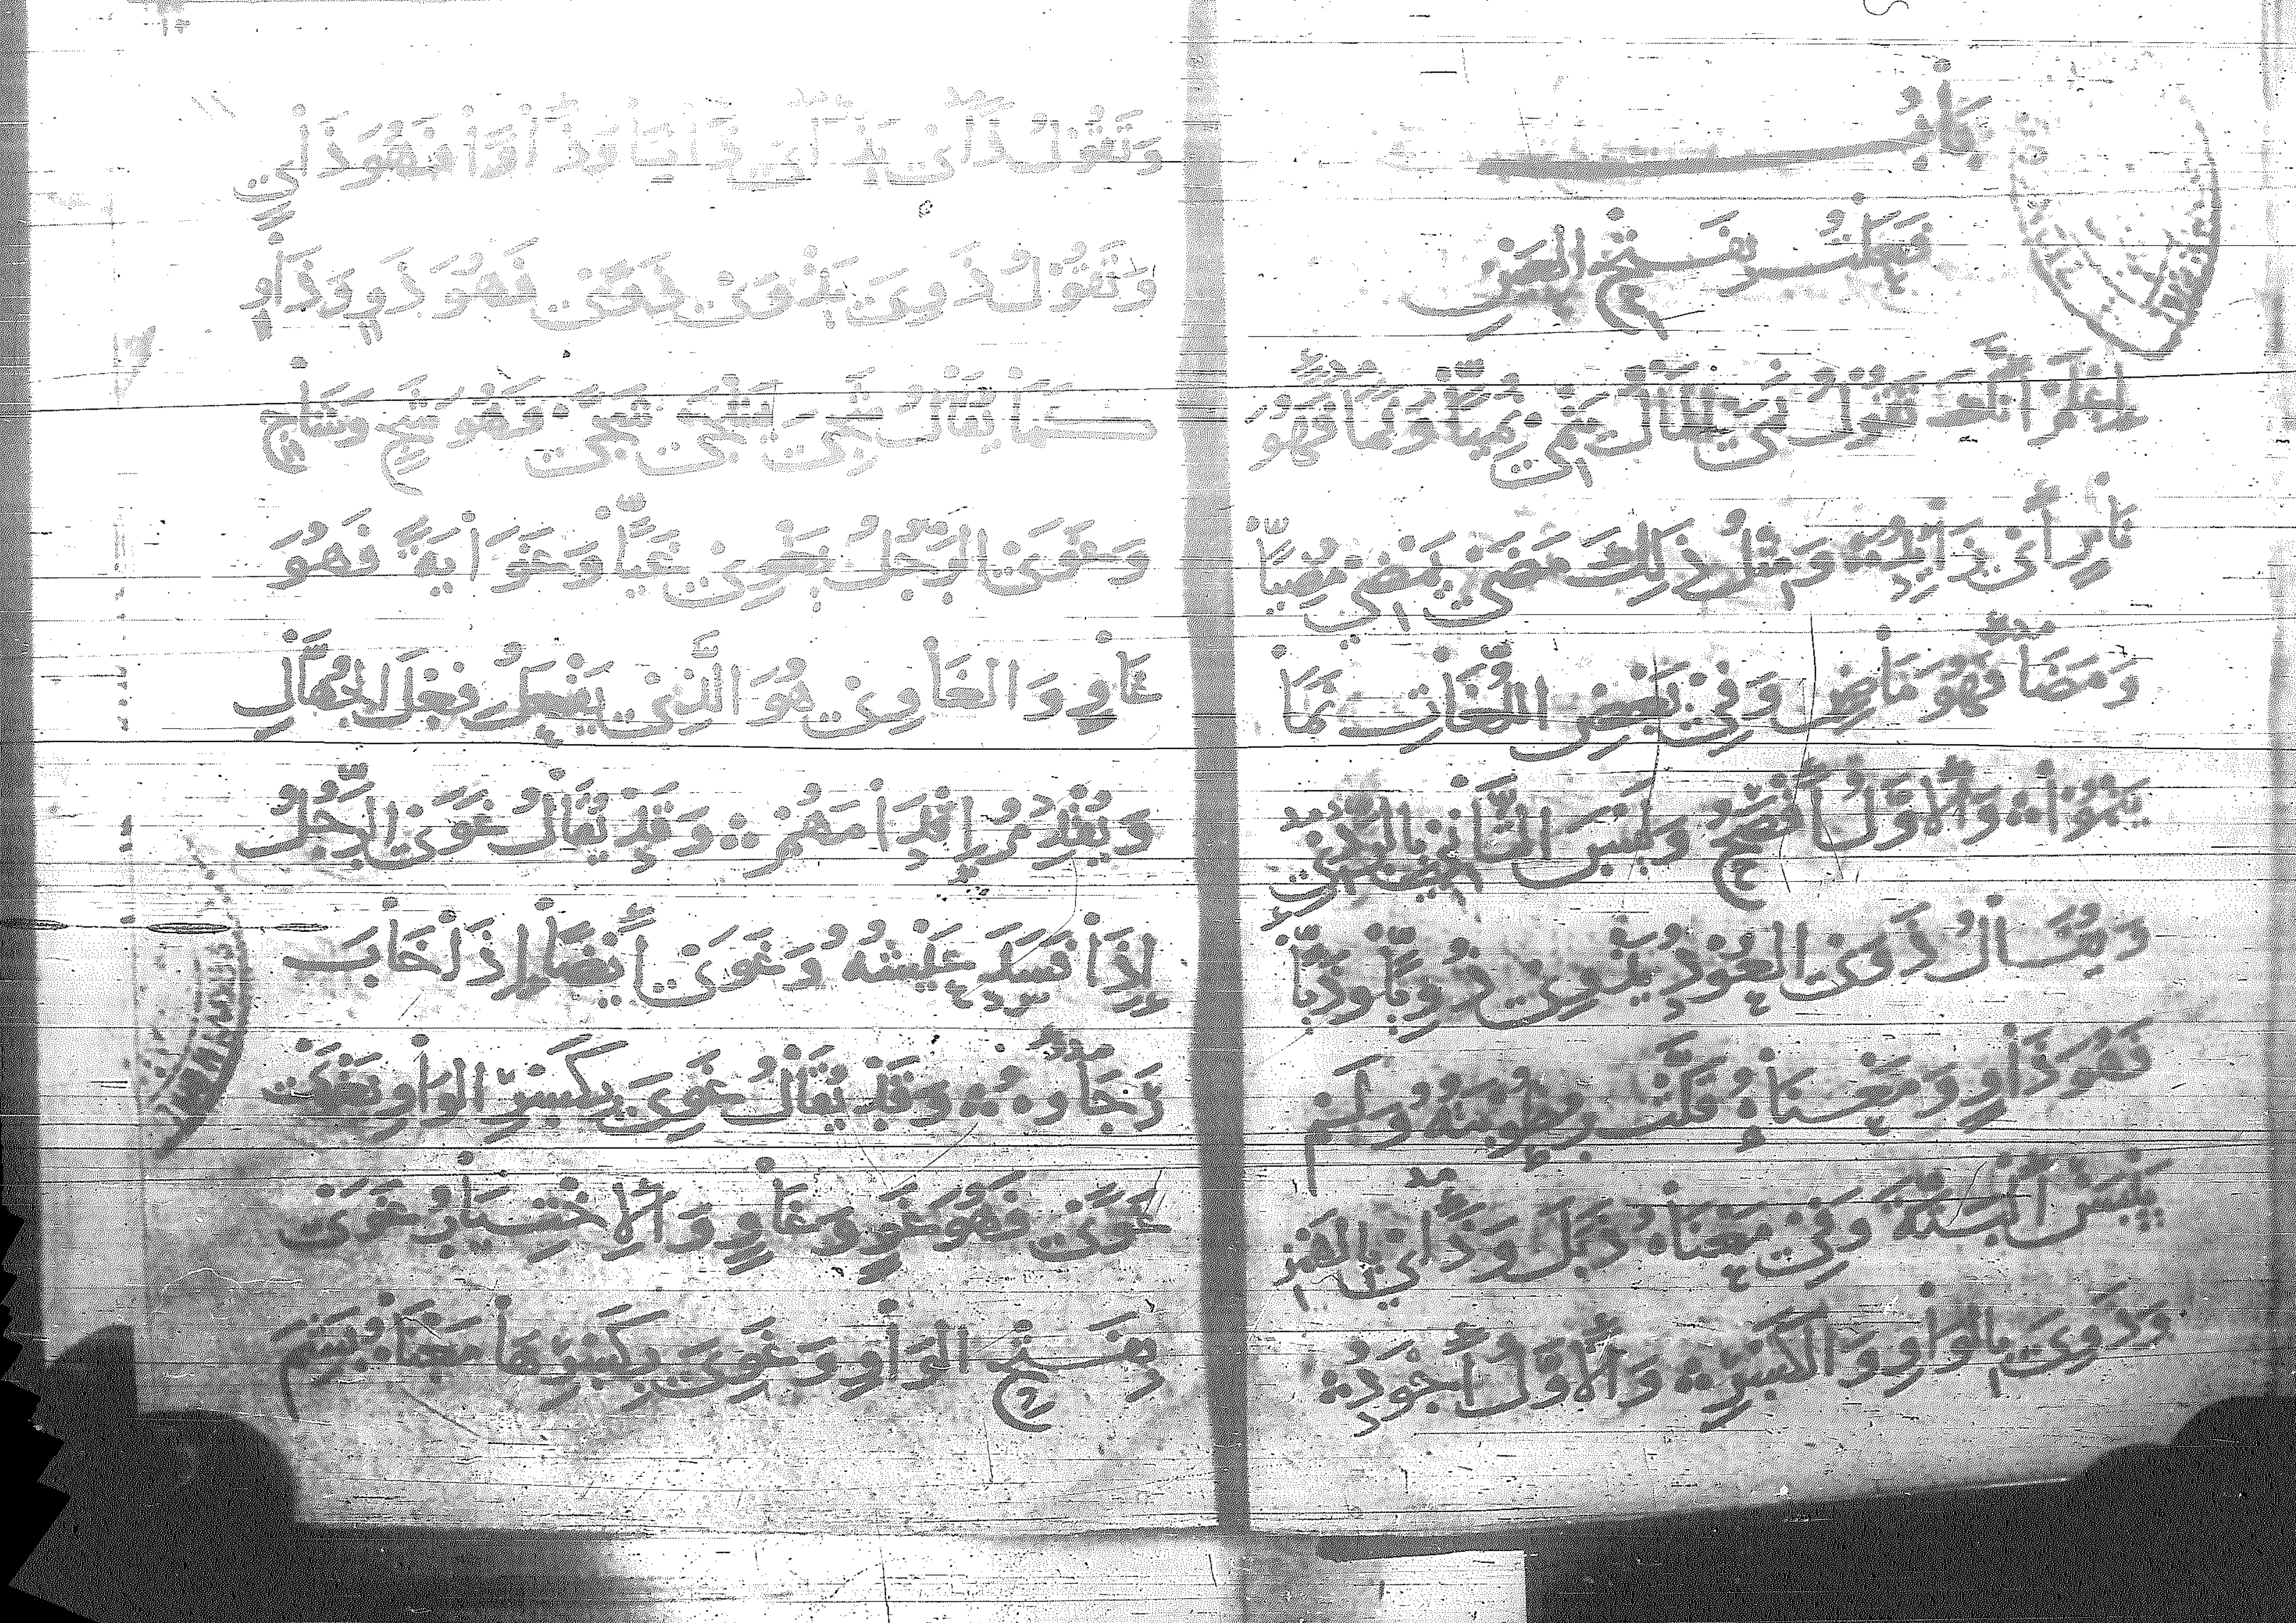 بَابُ
فَعَلْتُ بِفَتْحِ الْعَيْنِ
اِعْلَمْ أَنَّكَ تَقُولُ نَمَى الْمَالُ يَنْمِي نُمِيًّا وَنَمَاءً فَهُوَ
نَامٍ أَىْ زَايِدٌ وَمِثْلُ ذَلِكَ مَضَى يَمْضِي مُضِيًّا
وَمَضَاءً فَهُوَ مَاضٍ وَفِي بَعْضِ اللُّغَاتِ نَمَا
يَنْمُوا وَالْأَوَّلُ أَفْصَحُ وَلَيْسَ الثَّانِي بِالرَّدِيِّ
وَيُقَالُ ذَوَى الْعُودُ يَذْوِي ذُوِيًّا وَذَيًّا
فَهُوَ ذَاوٍ وَمَعْنَاهُ قَلَّتْ رُطُوبَتُهُ وَلَمْ
يَيْبَسْ الْبَتَّةَ وَفِي مَعْنَاهُ ذَبَلَ وَذَأَى بِالْهَمْزِ
وَذَوِيَ بِالْوَاوِ وَالْكَسْرِ وَالْأَوَّلُ أَجْوَدُ
وَتَقُولُ ذَأَى يَذْأَى ذَأْيًا وَذَأْوًا فَهُوَ ذَاءٍ
وَتَقُولُ ذَوِىَ يَذْوَى ذَوًى فَهُوَ ذَوٍ وَذَاوٍ
كَمَا يُقَالُ شَجِىَ يَشْجَى شَجًى فَهُوَ شَجٍ وَشَاجٍ
وَغَوَى الرَّجُلُ يَغْوِي غَيًّا وَغَوَايَةً فَهُوَ
غَاوٍ وَالْغَاوِي هُوَ الَّذِي يَفْعَلُ فِعْلَ الْجُهَّالِ
وَيُقْدِمُ إِقْدَامَهُمْ وَقَدْ يُقَالُ غَوَى الرَّجُلُ
إِذَا فَسَدَ عَيْشُهُ وَغَوَى أَيْضًا إِذَا خَابَ
رَجَاؤُهُ وَقَدْ يُقَالُ غَوِىَ بِكَسْرِ الْوَاوِ يَغْوَى
غَوًى فَهُوَ غَوٍ وَغَاوٍ وَالِاخْتِيَارُ غَوَى
بِفَتْحِ الْوَاوِ وَغَوِىَ بِكَسْرِهَا مَعْنَاهُ بَشِمَ